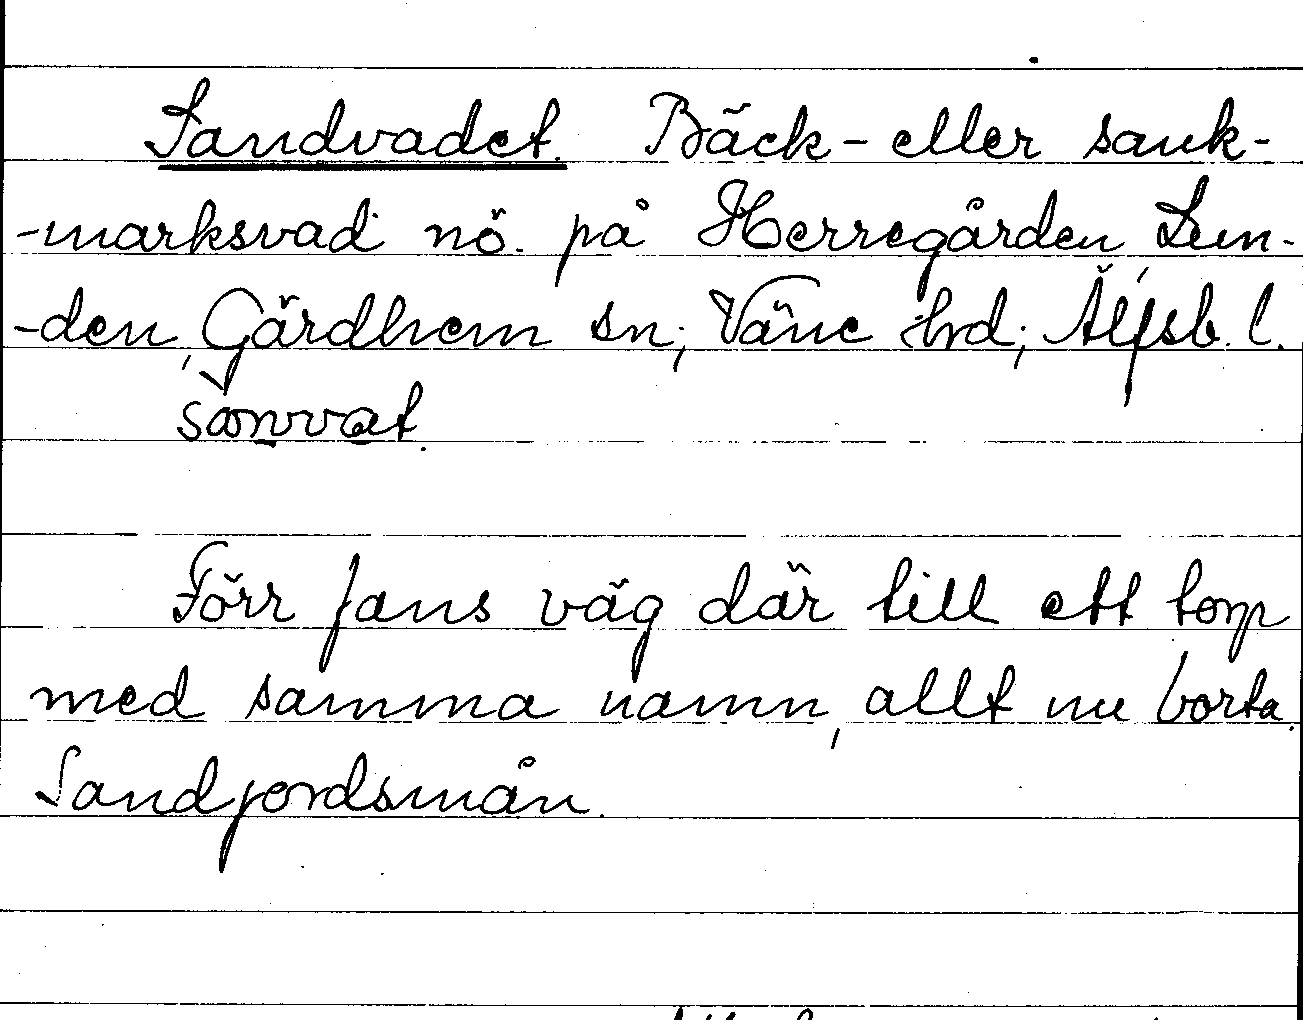 Sandvadet. Bäck- eller sank-
-marksvad nö. på Herregården Lun-
-den, Gärdhem sn; Väne hrd; Älfsb. l.
sanvat.
Förr fans väg där till ett torp
med samma namn, allt nu borta.
Sandjordsmån.